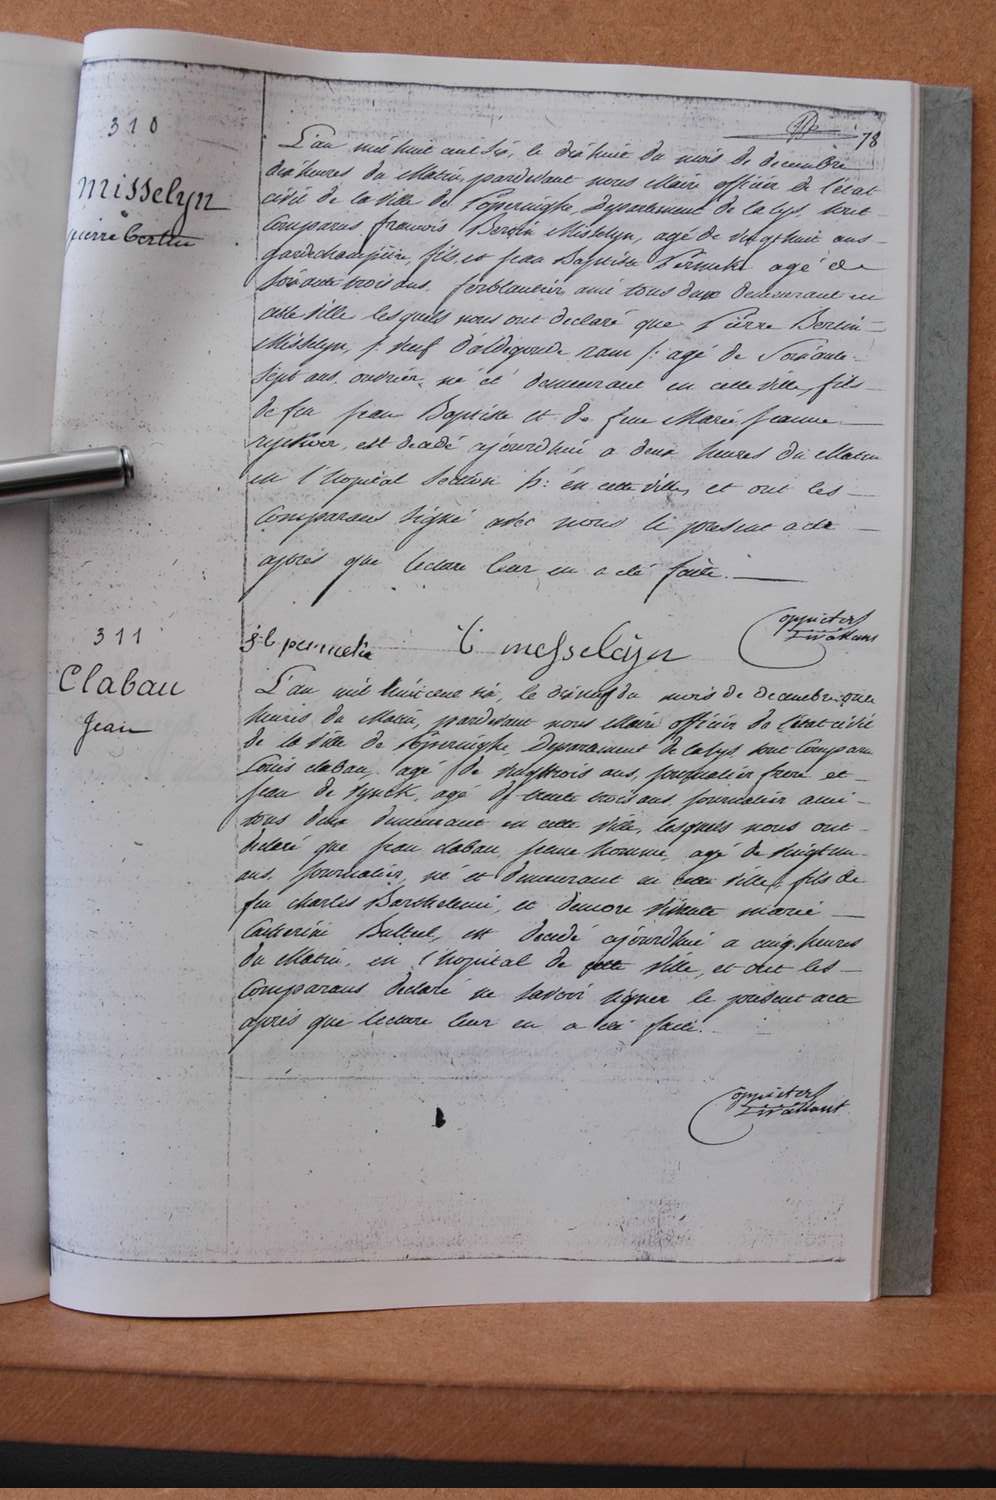 78
310
Misselyn
pierre bertin
L'an mil huit cent six, le dix huit du mois de decembre
dix heures du Matin, pardevant nous Maire officier de l'etat
civil de la ville de Poperinghe, Departement de la Lys, sont
Comparus francois Bertin Misselyn, agé de vingt huit ans
garde champetre, fils, et Jean Baptiste agé de
Soixante trois ans ferblantier ami tous deux demeurant en
cette ville lesquels nous ont declaré que Pierre Bertin
Misselyn, /: veuf d'aldegonde :/ agé de Soixante
Sept ans, ouvrier, né et demeurant en cette ville, fils
de feu Jean Baptiste et de feue Marie Jeanne
est decedé ajourdhui a deux heures du Matin
en l'hopital Section b: en cette ville, et ont les
Comparans signé avec nous le present acte
après que lecture leur en a été faite.
messeleijn
311
Clabau
Jean
L'an mil huit cent six, le dix neuf du mois de decembre onze
heures du Matin, pardevant nous Maire officier de l'etat civil
de la ville de Poperinghe, Departement de la Lys sont Comparu
Louis clabau, agé de vingt trois ans, journalier frere et
Jean de Synck, agé de trente trois ans, journalier ami
tous deux demeurant en cette ville, lesquels nous ont
declaré que Jean clabau, jeune homme, agé de vingt un
ans, journalier, né et demeurant en cette ville, fils de
feu charles Barthelemi, et d'encore vivante marie
Catherine Bulteel, est decedé ajourdhui a cinq heures
du Matin, en l'hopital de cette ville, et ont les
Comparans declaré ne savoir signer le present acte
après que lecture leur en a été faite.